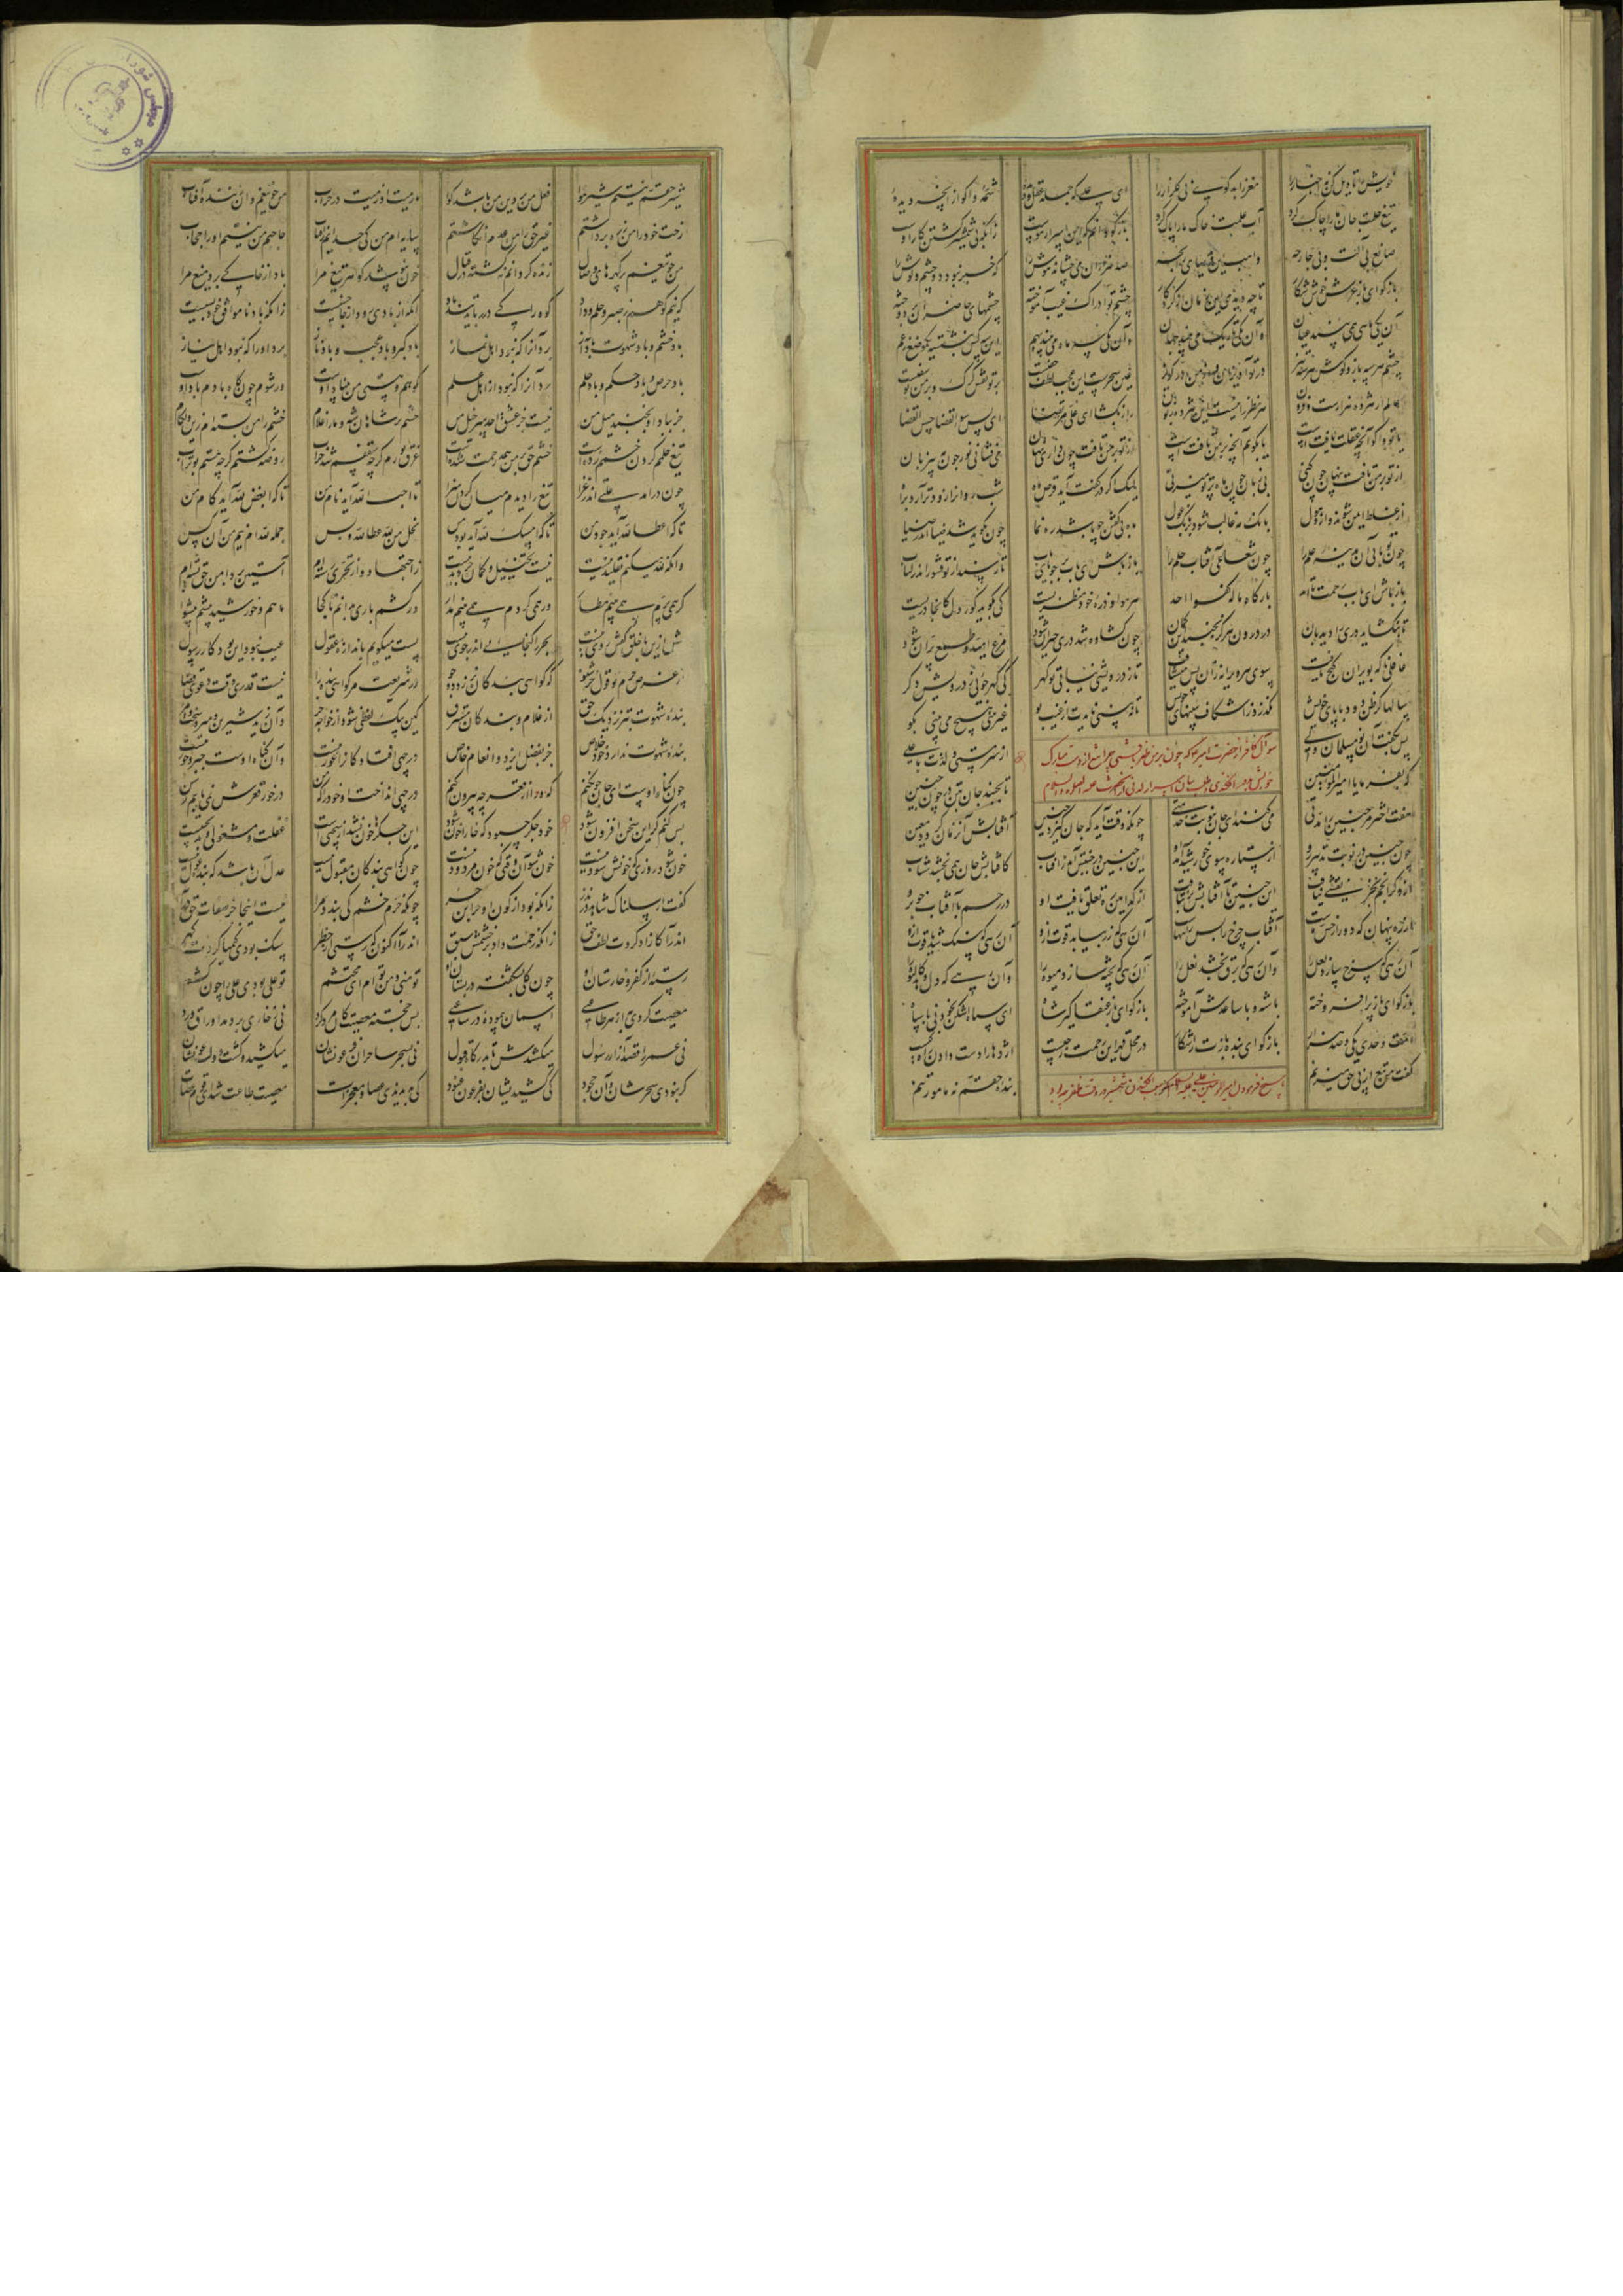 خویش را تاویل کن نه اخبار را مغز را بد گوی نی گلزار را ای علی که جمله عقل و دیدهٔ شمهٔ واگو از آنچه دیدهٔ
تیغ حلمت جان ما را چاک کرد آب علمت خاک ما را پاک کرد بازگو دانم که این اسرار هوست زانکه بی شمشیر کشتن کار اوست
صانع بی آلت و بی جارحه واهب این هدیهای رابحه صد هزاران می چشاند هوش را که خبر نبود دو چشم و گوش را
بازگو ای باز عرش خوش شکار تا چه دیدی این زمان از کردگار چشم تو ادراک غیب آموخته چشمهای حاضران بر دوخته
آن یکی ماهی همی بیند عیان وان یکی تاریک می بیند جهان وان یکی سه ماه می بیند بهم این سه کس بنشسته یک موضع نعم
چشم هر سه باز و گوش هر سه تیز در تو آویزان و از من در گریز سحر عین است این عجب لطف خفیست بر تو نقش گرگ و بر من یوسفیست
عالم ار هژده هزارست و فزون هر نظر را نیست این هژده زبون راز بگشا ای علی مرتضا ای پس سوء القضا حسن القضا
یا تو واگو آنچه عقلت یافتست یا بگویم آنچه بر من تافتست از تو بر من تافت چون داری نهان می فشانی نور چون مه بی زبان
از تو بر من تافت پنهان چون کنی بی زبان چون ماه پرتو میزنی لیک اگر در گفت آید قرص ماه شب روان را زودتر آرد براه
از غلط ایمن شوند و از ذهول بانگ مه غالب شود بر بانگ غول ماه بی گفتن چو باشد رهنما چون بگوید شد ضیا اندر ضیا
چون تو بابی آن مدینه علم را چون شعاعی آفتاب حلم را باز باش ای باب بر جویای باب تا رسند از تو قشور اندر لباب
باز باش ای باب رحمت تا ابد بارگاه ما له کفوا احد هر هوا و ذره خود منظریست کی گوید کور دل کانجا دریست
تا بنگشاید دری را دیدبان در درون هرگز نجنبد این گمان چون گشاده شد دری حیران شود مرغ امید و طمع پران شود
غافلی ناگه بویران گنج یافت سوی هر ویرانه زان پس می شتافت تا ز درویشی نیابی تو گهر کی گهر جویی ز درویش دگر
سالها گر ظن دود با پای خویش نگذرد ز اشکاف بینیهای خویش تا به بینی نایدت از غیب بو غیر بینی هیچ می بینی بگو
سوال کافر از حضرت امیر که چون بر من مظفر گشتی چرا تیغ از دست مبارک
پس بگفت آن نو مسلمان ولی از سر مستی و لذت با علی
که بفرما یا امیرالمومنین تا بجنبد جان بتن در چون جنین
هفت اختر هر جنین را مدتی می کنند ای جان بنوبت خدمتی چونکه وقت آید که جان گیرد جنین آفتابش آن زمان گردد معین
چون جنین از نوبت تدبیر رو از ستاره سوی خورشید آید او این جنین در جنبش آمد ز آفتاب کافتابش جان همی بخشد شتاب
از دگر انجم بجز نقشی نیافت این جنین تا آفتابش بر نتافت از کدامین ره تعلق یافت او در رحم با آفتاب خوب رو
از ره پنهان که دور از حس ماست آفتاب چرخ را بس راههاست آن رهی که زر بیابد قوت ازو آن رهی که سنگ شد یاقوت ازو
آن رهی که سرخ سازد لعل را وان رهی که برق بخشد نعل را آن رهی که پخته سازد میوه را وان رهی که دل دهد کالیوه را
بازگو ای باز پر افروخته با شه و با ساعدش آموخته بازگو ای باز عنقا گیر شاه ای سپاه اشکن بخود نی با سپاه
امت وحدی یکی و صد هزار بازگو ای بنده بازت را شکار در محل قهر این رحمت ز چیست اژدها را دست دادن راه کیست
گفت من تیغ از پی حق میزنم بنده حقم نه مامور تنم
شیر حقم نیستم شیر هوا فعل من بر دین من باشد گوا ما رمیت اذ رمیت در حراب من چو تیغم وان زننده آفتاب
رخت خود را من ز ره برداشتم غیر حق را من عدم انگاشتم سایه ام من کی جدایم ز آفتاب حاجبم من نیستم او را حجاب
من چو تیغم پر گهرهای وصال زنده گردانم نه کشته در قتال خون نپوشد گوهر تیغ مرا باد از جا کی برد میغ مرا
که نیم کوهم ز صبر و حلم و داد کوه را کی در رباید تند باد آنکه از بادی رود از جا خسیست زانکه باد ناموافق خود بسیست
باد خشم و باد شهوت باد آز برد آنرا که نبود اهل نماز باد کبر و باد عجب و باد ناز برد او را که نبود اهل نیاز
باد حرص و باد خشم و باد حلم برد آنرا که نبود از اهل علم کوهم و هستی من بنیاد اوست ور شوم چون کاه بادم باد اوست
جز بباد او نجنبد میل من نیست جز عشق احد سر خیل من خشم بر شاهان شه و ما را غلام خشم را من بسته ام زیر لگام
تیغ حلمم گردن خشمم زدست خشم حق بر من چو رحمت شدست غرق نورم گرچه سقفم شد خراب روضه گشتم گرچه هستم بوتراب
چون درآمد علتی اندر غزا تیغ را دیدم میان کردن سزا تا احب لله آید نام من تا که ابغض لله آید کام من
تا که اعطا لله آید جود من تا که امسک لله آید بود من بخل من لله عطا لله و بس جمله لله ام نیم من آن کس
وانکه لله میکنم تقلید نیست نیست تخییل و گمان جز دید نیست ز اجتهاد و از تحری رسته ام آستین بر دامن حق بسته ام
گر همی پرم همی بینم مطار ور همی گردم همی بینم مدار ور کشم باری بدانم تا کجا ماهم و خورشید پیشم پیشوا
بیش ازین با خلق گفتن روی نیست بحر را گنجایی اندر جوی نیست پست میگویم باندازه عقول عیب نبود این بود کار رسول
از غرض حرم تو قول حر شنو که گواهی بندگان نرزد دو جو در شریعت مر گواهی بنده را نیست قدری وقت دعوی و قضا
بنده شهوت بتر نزدیک حق از غلام و بندگان مسترق کین بیک لفظی شود از خواجه حر وان زید شیرین و میرد سخت مر
بنده شهوت ندارد خود خلاص جز بفضل ایزد و انعام خاص در چهی افتاد کان را غور نیست وان گناه اوست جبر و جور نیست
چون گناه اوست ای جان چون کنم که ورا از قعر چه بیرون کنم در چهی انداخت او خود را که من در خور قعرش نمی یابم رسن
بس کنم گر این سخن افزون شود خود جگر چه بود که خارا خون شود این جگرها خون نشد از سختیست غفلت و مشغولی و بدبختیست
خون شود روزی که خونش سود نیست خون شو آن وقتی که خون مردود نیست چون گواهی بندگان مقبول نیست عدل آن باشد که بنده غول نیست
گفت ارسلناک شاهد در نذر زانکه بود از کون او حر ابن حر چونکه حرم خشم کی بندد مرا نیست اینجا جز صفات حق درا
اندرآ کازاد کردت لطف حق زانکه رحمت داد بر خشمش سبق اندرآ اکنون که رستی از خطر سنگ بودی کیمیا کردت گهر
رسته از کفر و خارستان او چون گلی بشکفته در بستان او تو منی و من توام ای محتشم تو علی بودی علی را چون کشم
معصیت کردی به از هر طاعتی آسمان پیمودهٔ در ساعتی بس خجسته معصیت کان مرد کرد نی ز خاری بردمد اوراق ورد
نی عمر را قصد آزار رسول میکشیدش تا بدرگاه قبول نی بسحر ساحران فرعونشان میکشید و گشت دولت عونشان
گر نبودی سحرشان و آن جحود کی کشیدیشان بفرعون عنود کی بدیدندی عصا و معجزات معصیت طاعت شد ای قوم عصات
مجلس شورا